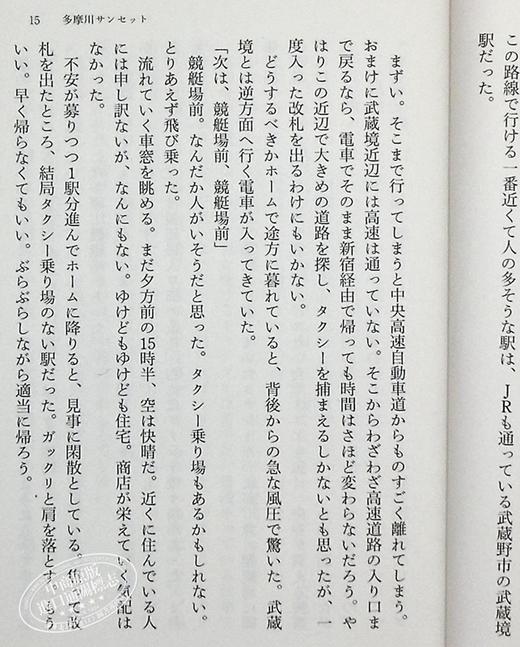 この路線で行ける一番近くて人の多そうな駅は、JRも通っている武蔵野市の武蔵境
駅だった。
15　多摩川サンセット
まずい。そこまで行ってしまうと中央高速自動車道からものすごく離れてしまう。
おまけに武蔵境近辺には高速は通っていない。そこからわざわざ高速道路の入り口ま
で戻るなら、電車でそのまま新宿経由で帰っても時間はさほど変わらないだろう。や
はりこの近辺で大きめの道路を探し、タクシーを捕まえるしかないとも思ったが、一
度入った改札を出るわけにもいかない。
どうするべきかホームで途方に暮れていると、背後からの急な風圧で驚いた。武蔵
境とは逆方面へ行く電車が入ってきていた。
「次は、競艇場前、競艇場前」
競艇場前。なんだか人がいそうだと思った。タクシー乗り場もあるかもしれない。
とりあえず飛び乗った。
流れていく車窓を眺める。まだ夕方前の15時半、空は快晴だ。近くに住んでいる人
には申し訳ないが、なんにもない。ゆけどもゆけども住宅。商店が栄えてい気配は
なかった。
不安が募りつつ1駅分進んでホームに降りると、見事に閑散としている。て改
札を出たところ、結局タクシー乗り場のない駅だった。ガックリと肩を落とす。もう
いい。早く帰らなくてもいい。ぶらぶらしながら適当に帰ろう。